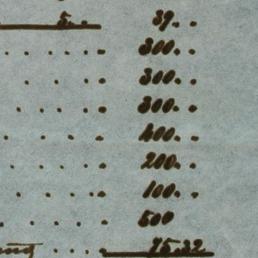 5. . 39. .
. . . . 300. .
. . . . 300. .
. . . . 300. .
. . . . 400. .
. . . . 200. .
. . . . 100. .
. . . . 500
. . . 75.32